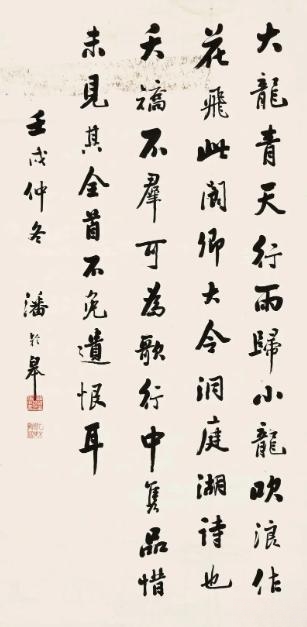 大龍青天行雨歸小龍吹浪作
花飛此閻卿大令洞庭湖詩也
夭矯不羣可為歌行中隽品惜
未見其全首不免遺恨耳
壬戌仲冬 潘齡皋